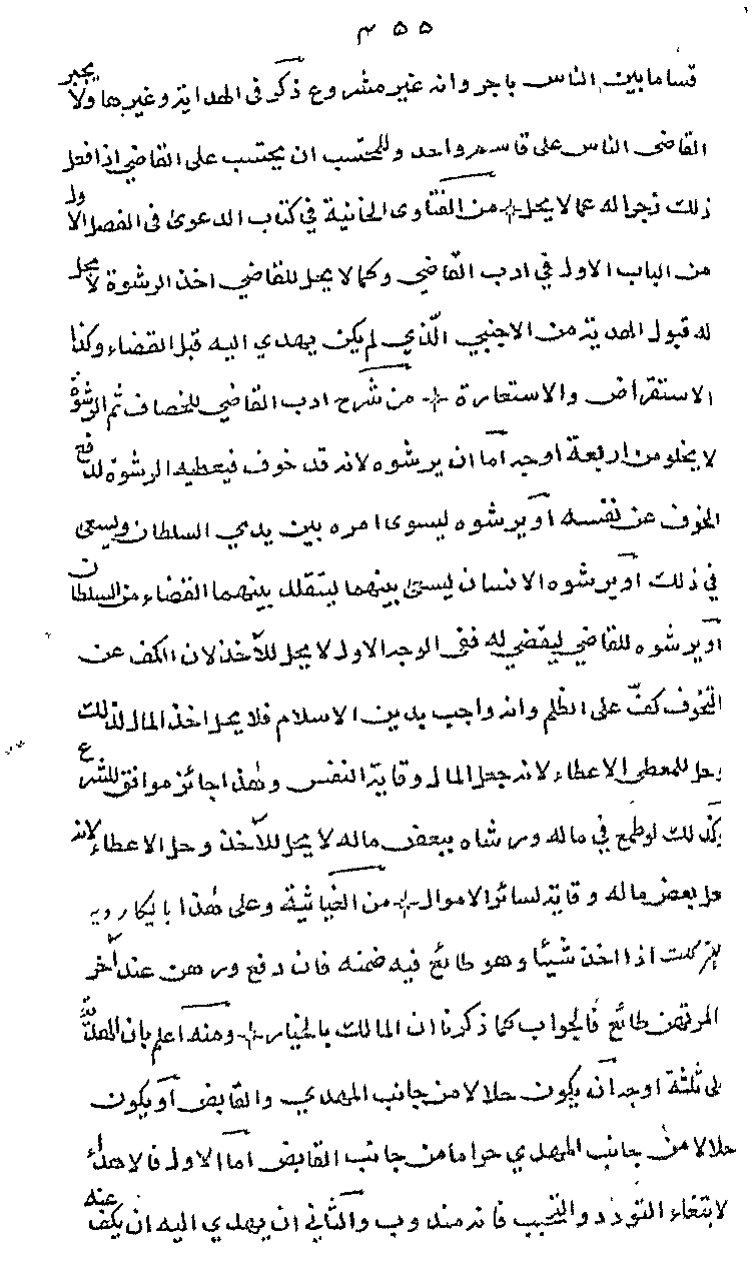 ٣٥٥
قساما بين الناس باجر وانه غير مشروع ذكر فى الهداية وغيرها ولا يجبر
القاضى الناس على قاسم واحد وللمحتسب ان يحتسب على القاضي اذا فعل
ذلك زجرا له عما لا يحل من الفتاوى الخانية في كتاب الدعوى فى الفصل الاول
من الباب الاول في ادب القاضي وكما لا يحل للقاضي اخذ الرشوة لا يحل
له قبول الهدية من الاجنبي الّذي لم يكن يهدي اليه قبل القضاء وكذا
الاستقراض والاستعارة من شرح ادب القاضي للخصاف ثم الرشوة
لا يخلو من اربعة اوجه اما ان يرشوه لانه قد خوف فيعطيه الرشوة لدفع
الخوف عن نفسه او يرشوه ليسوى امره بين يدي السلطان ويسعى
في ذلك او يرشوه الانسان ليسعى بينهما ليتقلد بينهما القضاء من السلطان
او يرشوه للقاضي ليقضي له ففى الوجه الاول لا يحل للآخذ لان الكف عن
التخوف كفّ على الظلم وانه واجب بدين الاسلام فلا يحل اخذ المال لذلك
وحل للمعطى الاعطاء لانه جعل المال وقاية النفس وهذا جائز موافق للشرع
وكذلك لو طمع في ماله ورشاه ببعض ماله لا يحل للآخذ وحل الاعطاء لانه
جعل بعض ماله وقاية لسائر الاموال من الغياثية وعلى هذا
اذا اخذ شيئا وهو طائع فيه ضمنه فان دفع ورهن عند آخر
المرتهن طائع فالجواب كما ذكرنا ان المالك بالخيار ومنه اعلم بان الهدية
على ثلثة اوجه ان يكون حلالا من جانب المهدي والقابض او يكون
حلالا من جانب المهدي حراما من جانب القابض اما الاول فالاهداء
لابتغاء التودد والتحبب فانه مندوب والثاني ان يهدي اليه ان يكف عنه